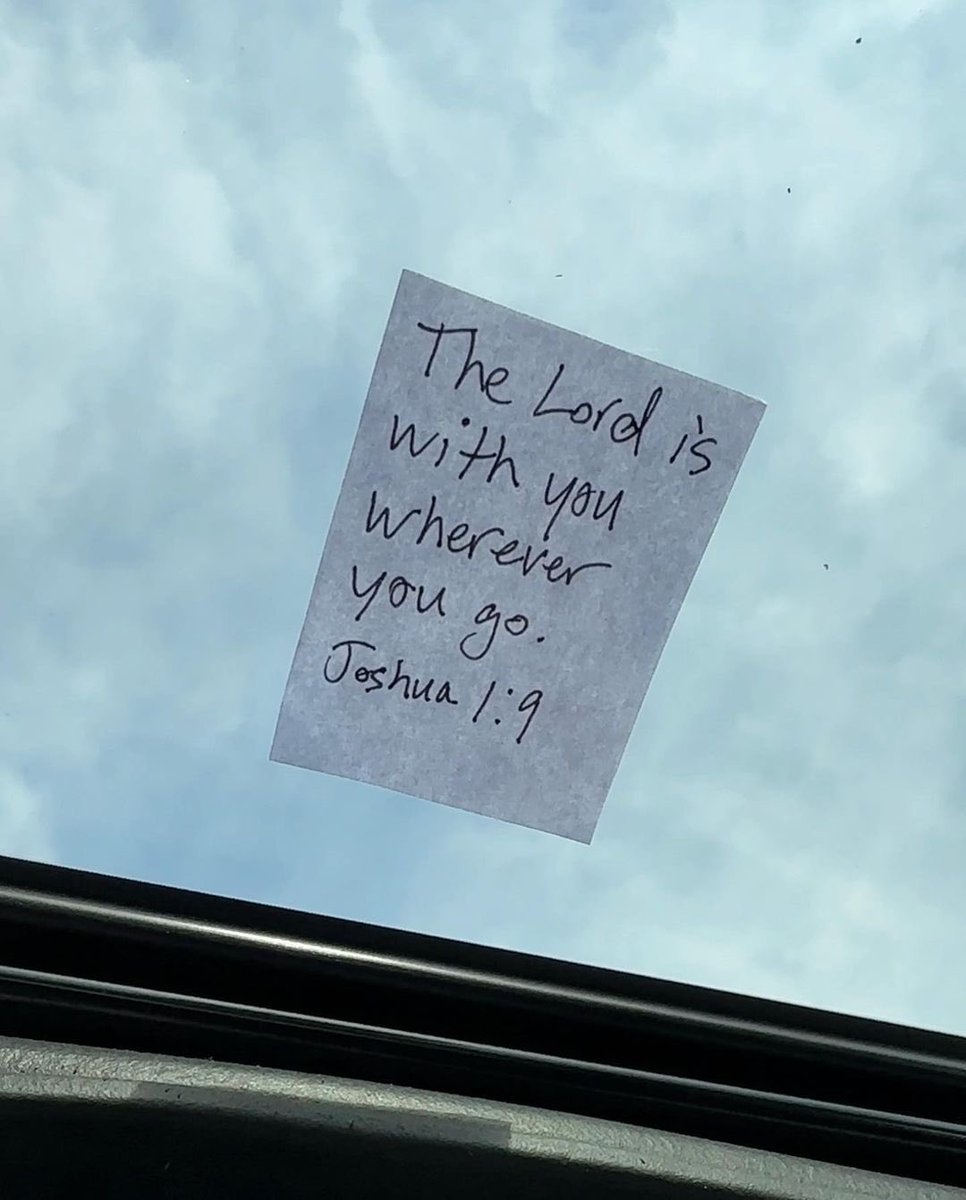 The Lord is
with you
wherever
you go.
Joshua 1:9